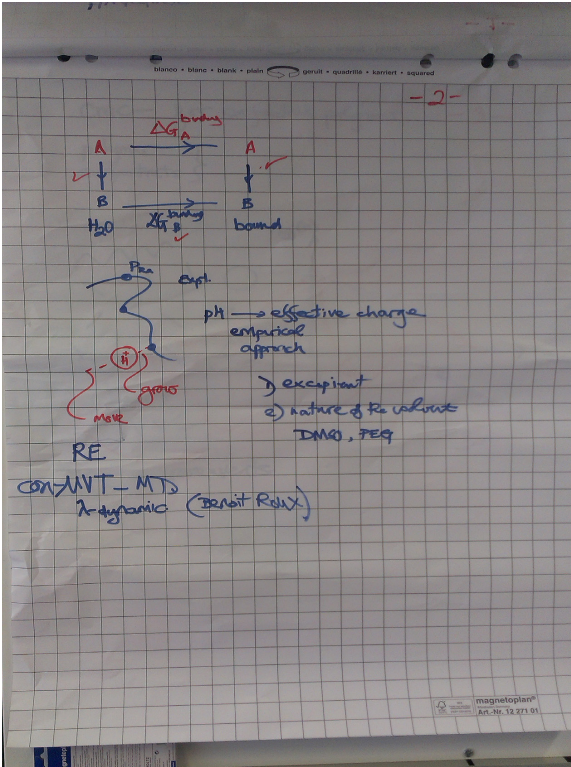 blanco • blanc • blank • plain
geruit • quadrille • karriert • squared
-2-
ΔG binding A
A A
B B
ΔG binding B
H2O bound
PKa
Expt.
pH → effective charge
empirical
approach
H+
grow
move
1) excipient
2) nature of the solvent
DMSO, PEG
RE
λ-dynamic (Benoit Roux)
magnetoplan®
Art.-Nr. 12 271 01